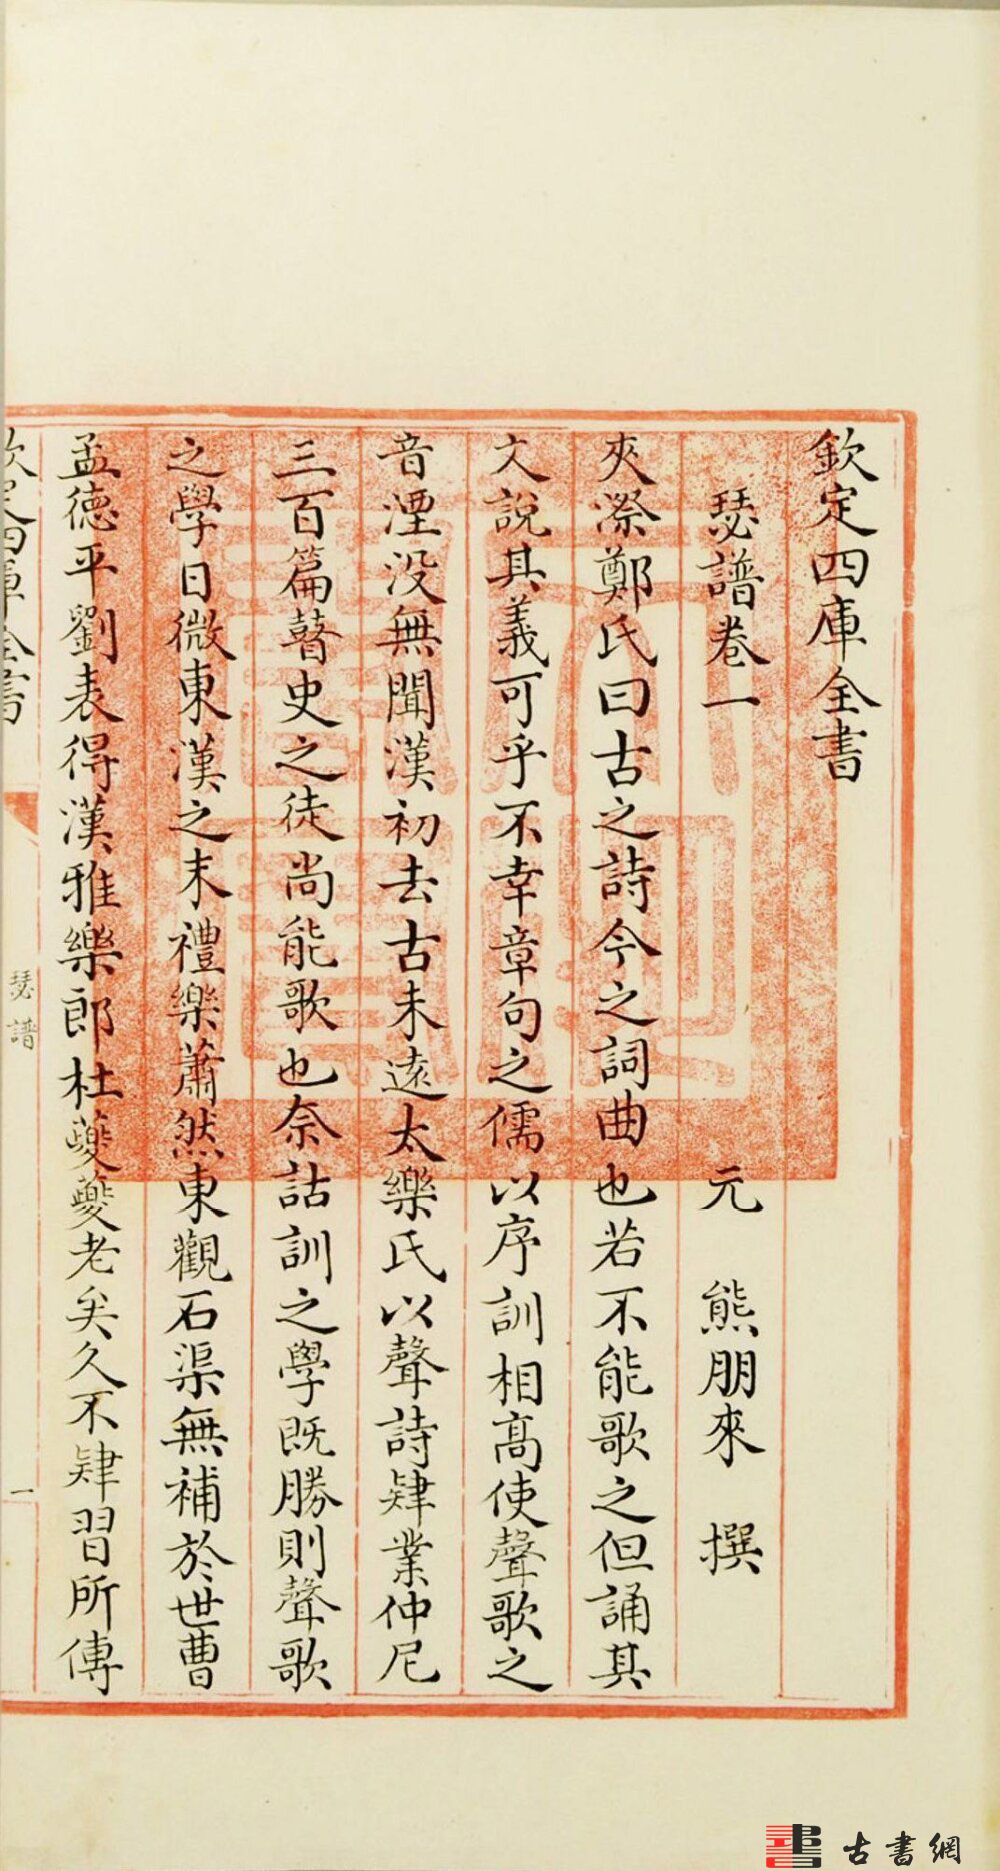 欽定四庫全書
瑟譜卷一
元 熊朋來 撰
夾漈鄭氏曰古之詩今之詞曲也若不能歌之但誦其
文說其義可乎不幸章句之儒以序訓相髙使聲歌之
音湮没無聞漢初去古未逺太樂氏以聲詩肄業仲尼
三百篇瞽史之徒尚能歌也奈詁訓之學既勝則聲歌
之學日微東漢之末禮樂蕭然東觀石渠無補於世曹
孟德平劉表得漢雅樂郎杜夔夔老矣久不肄習所傳
欽定四庫全書
瑟譜
一
古書網